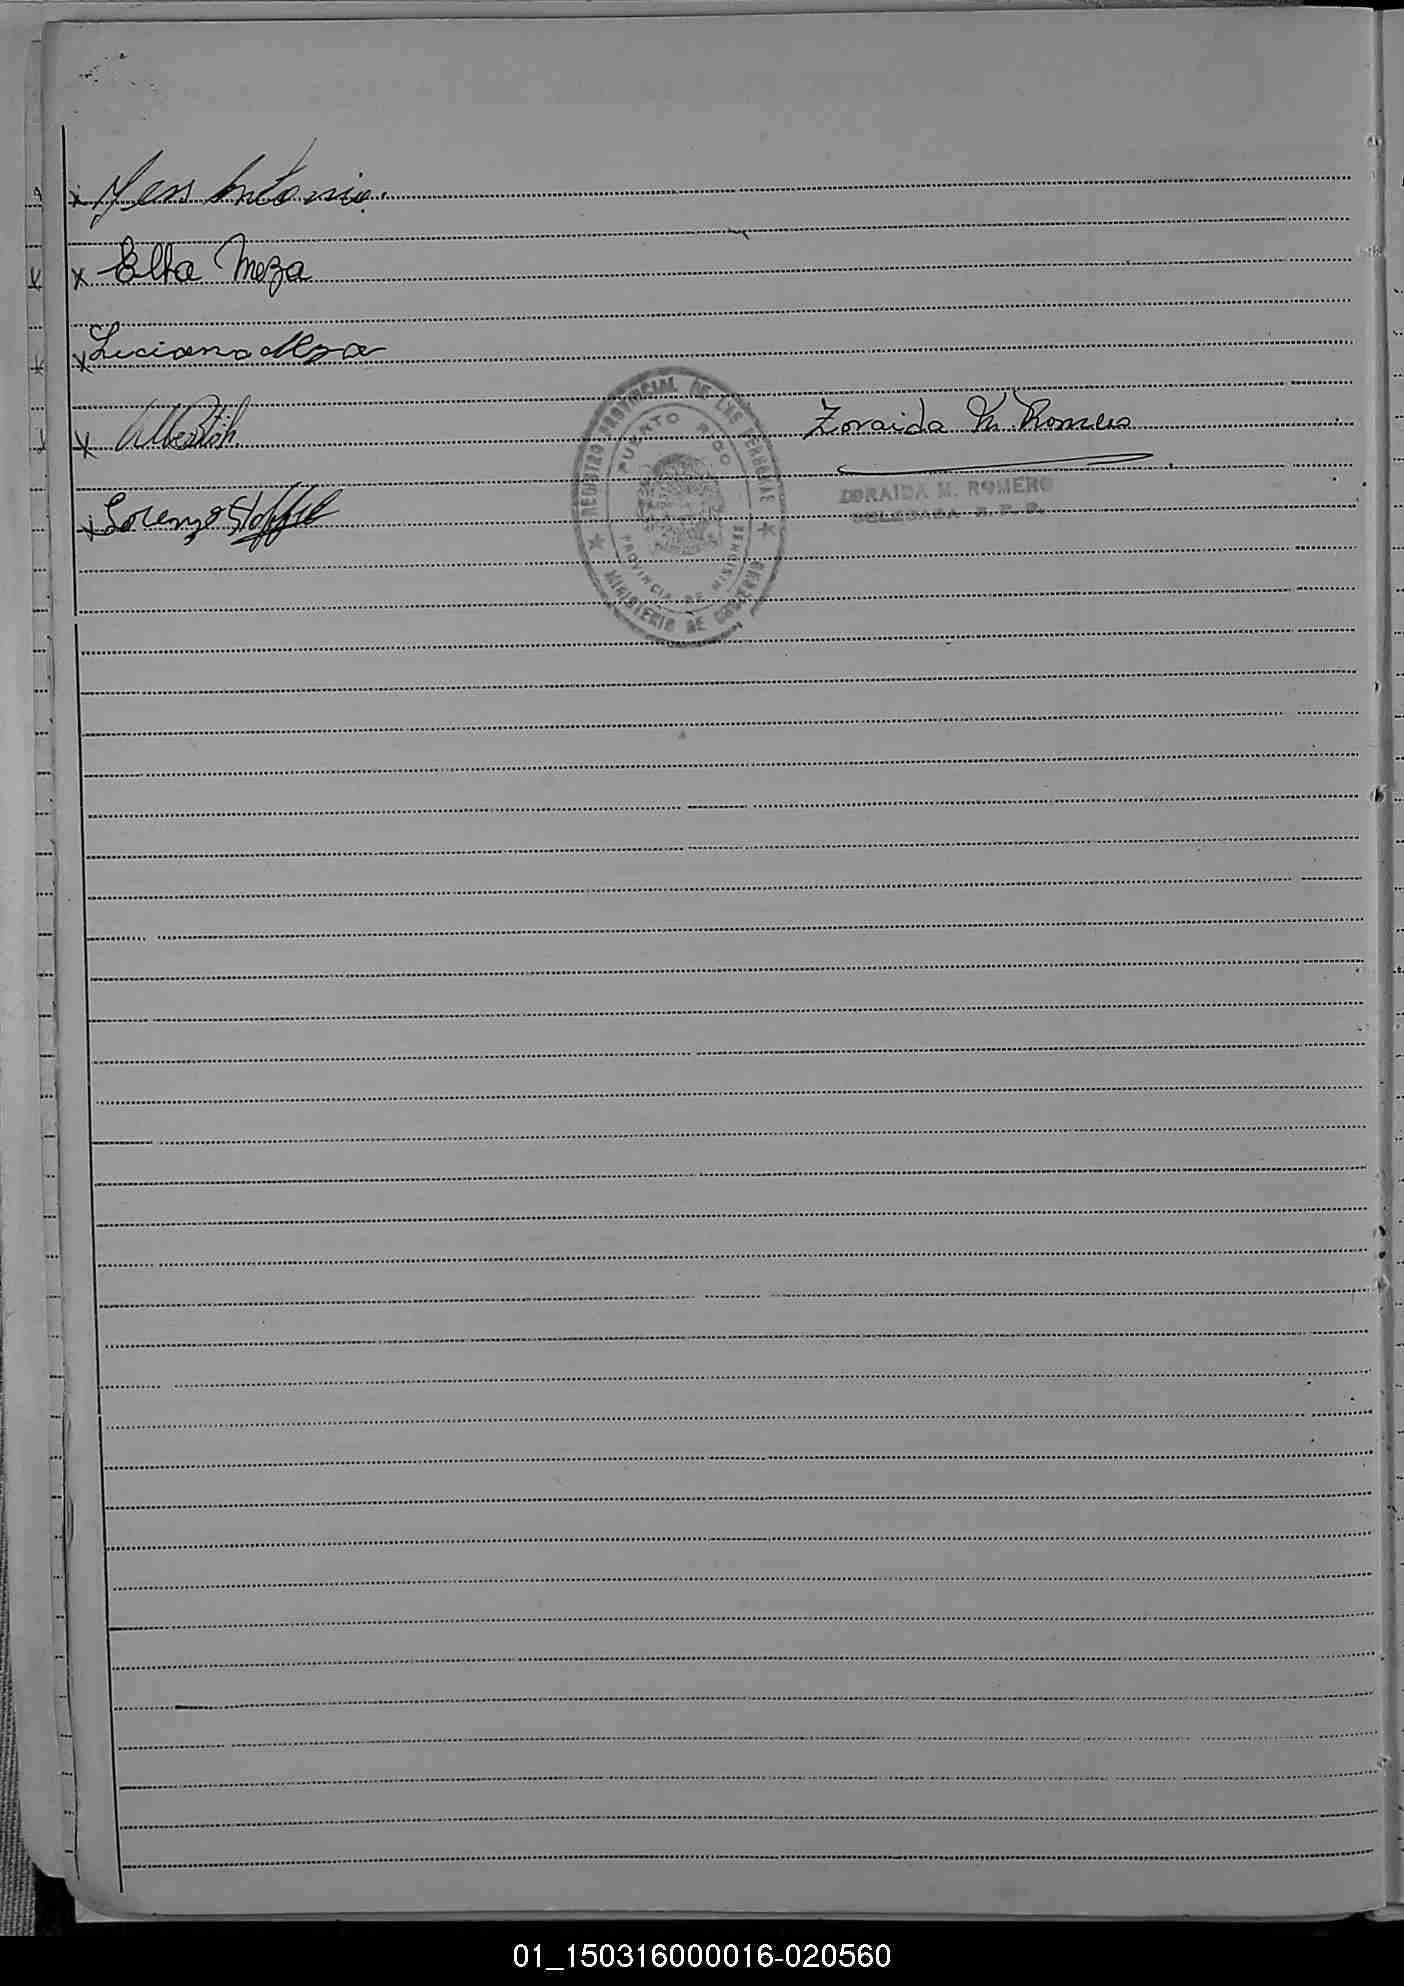 x Antonio.
x Elba Meza
x Luciano Meza
x
x Lorenzo
Zoraida M. Romero
ZORAIDA M. ROMERO
DELEGADA R. P. P.
REGISTRO PROVINCIAL DE LAS PERSONAS
PUERTO RICO
PROVINCIA DE MISIONES
★ MINISTERIO DE GOBIERNO ★
01_150316000016-020560